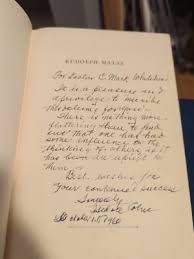 RUDOLPH MATAS
For Doctor C. Mark Whitehead
It is a pleasure and
a privilege to inscribe
this volume for you.
There is nothing more
flattering than to find
out that one has had
some influence on the
thinking of others if it
has been an uplift to
them.
Best wishes for
your continued success
Sincerely
Isidore Cohn
October 15, 1960